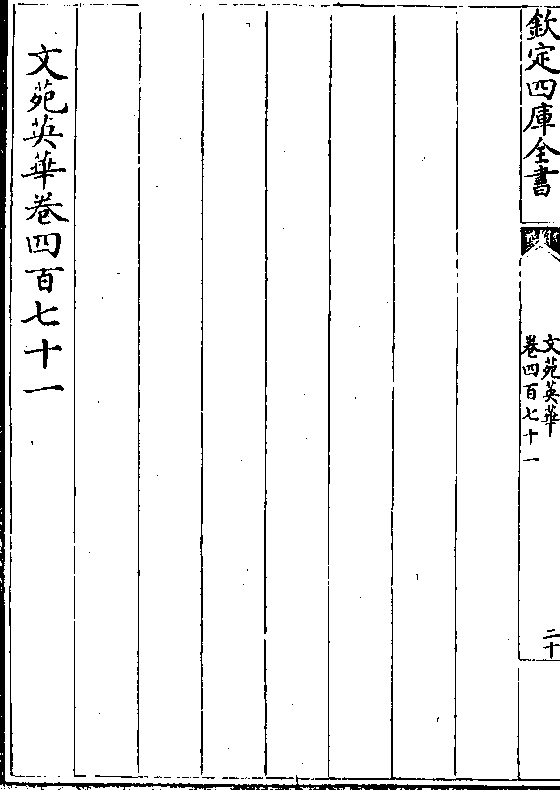 欽定四庫全書
文苑英華
卷四百七十一
二十
文苑英華卷四百七十一